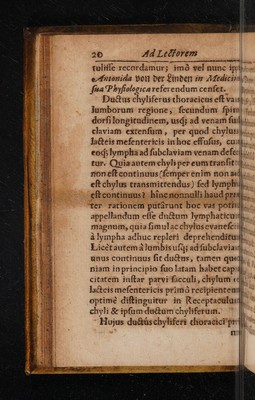 20 Ad Lectorem
tulisse recordamur; imò vel nunc
Antonida von der Linden in Medicina
sua Physiologica referendum censet.
Ductus chyliferus thoracicus est vas in
lumborum regione, secundum spinæ
dorsi longitudinem, usq; ad venam sub
claviam extensum, per quod chylus
lacteis mesentericis in hoc effusus, cum
eoq; lympha ad subclaviam venam defer
tur. Quia autem chyli per eum transitus
non est continuus (semper enim non ad
est chylus transmittendus) sed lympha
est continuus: hinc nonnulli haud præ
ter rationem putârunt hoc vas potius
appellandum esse ductum lymphaticum
magnum, quia simul ac chylus evanescit
à lympha adhuc repleri deprehenditur.
Licèt autem à lumbis usq; ad subclaviam
unus continuus sit ductus, tamen quo
niam in principio suo latam habet capa
citatem instar parvi sacculi, chylum
lacteis mesentericis primò recipientem
optimè distinguitur in Receptaculum
chyli & ipsum ductum chyliferum.
Hujus ductûs chyliferi thoracici